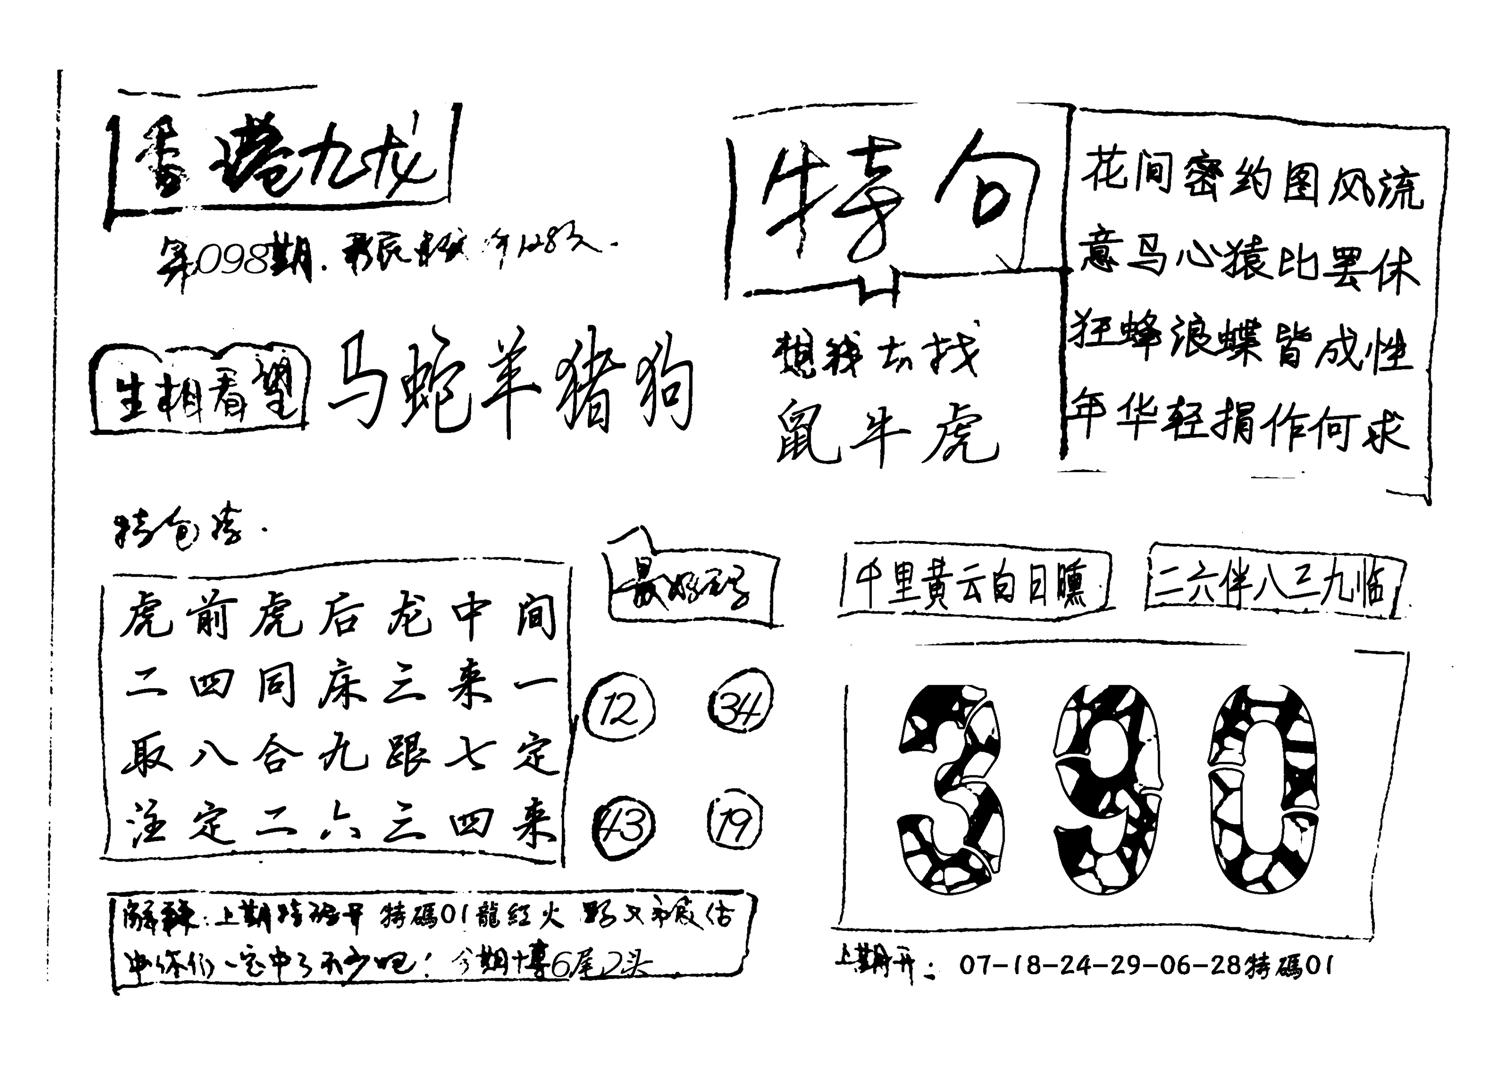 香港九龙
第098期.
生相看望
马蛇羊猪狗
特句
想我去找
鼠牛虎
花间密约图风流
意马心猿比罢休
狂蜂浪蝶皆成性
年华轻捐作何求
虎前虎后龙中间
二四同床三来一
取八合九跟七定
注定二六三四来
最好码
12 34
43 19
千里黄云白日曛
二六伴八三九临
390
解释:上期特码开 特碼01龍红火
中你们一定中了不少吧! 今期博6尾2头
上期开: 07-18-24-29-06-28特碼01